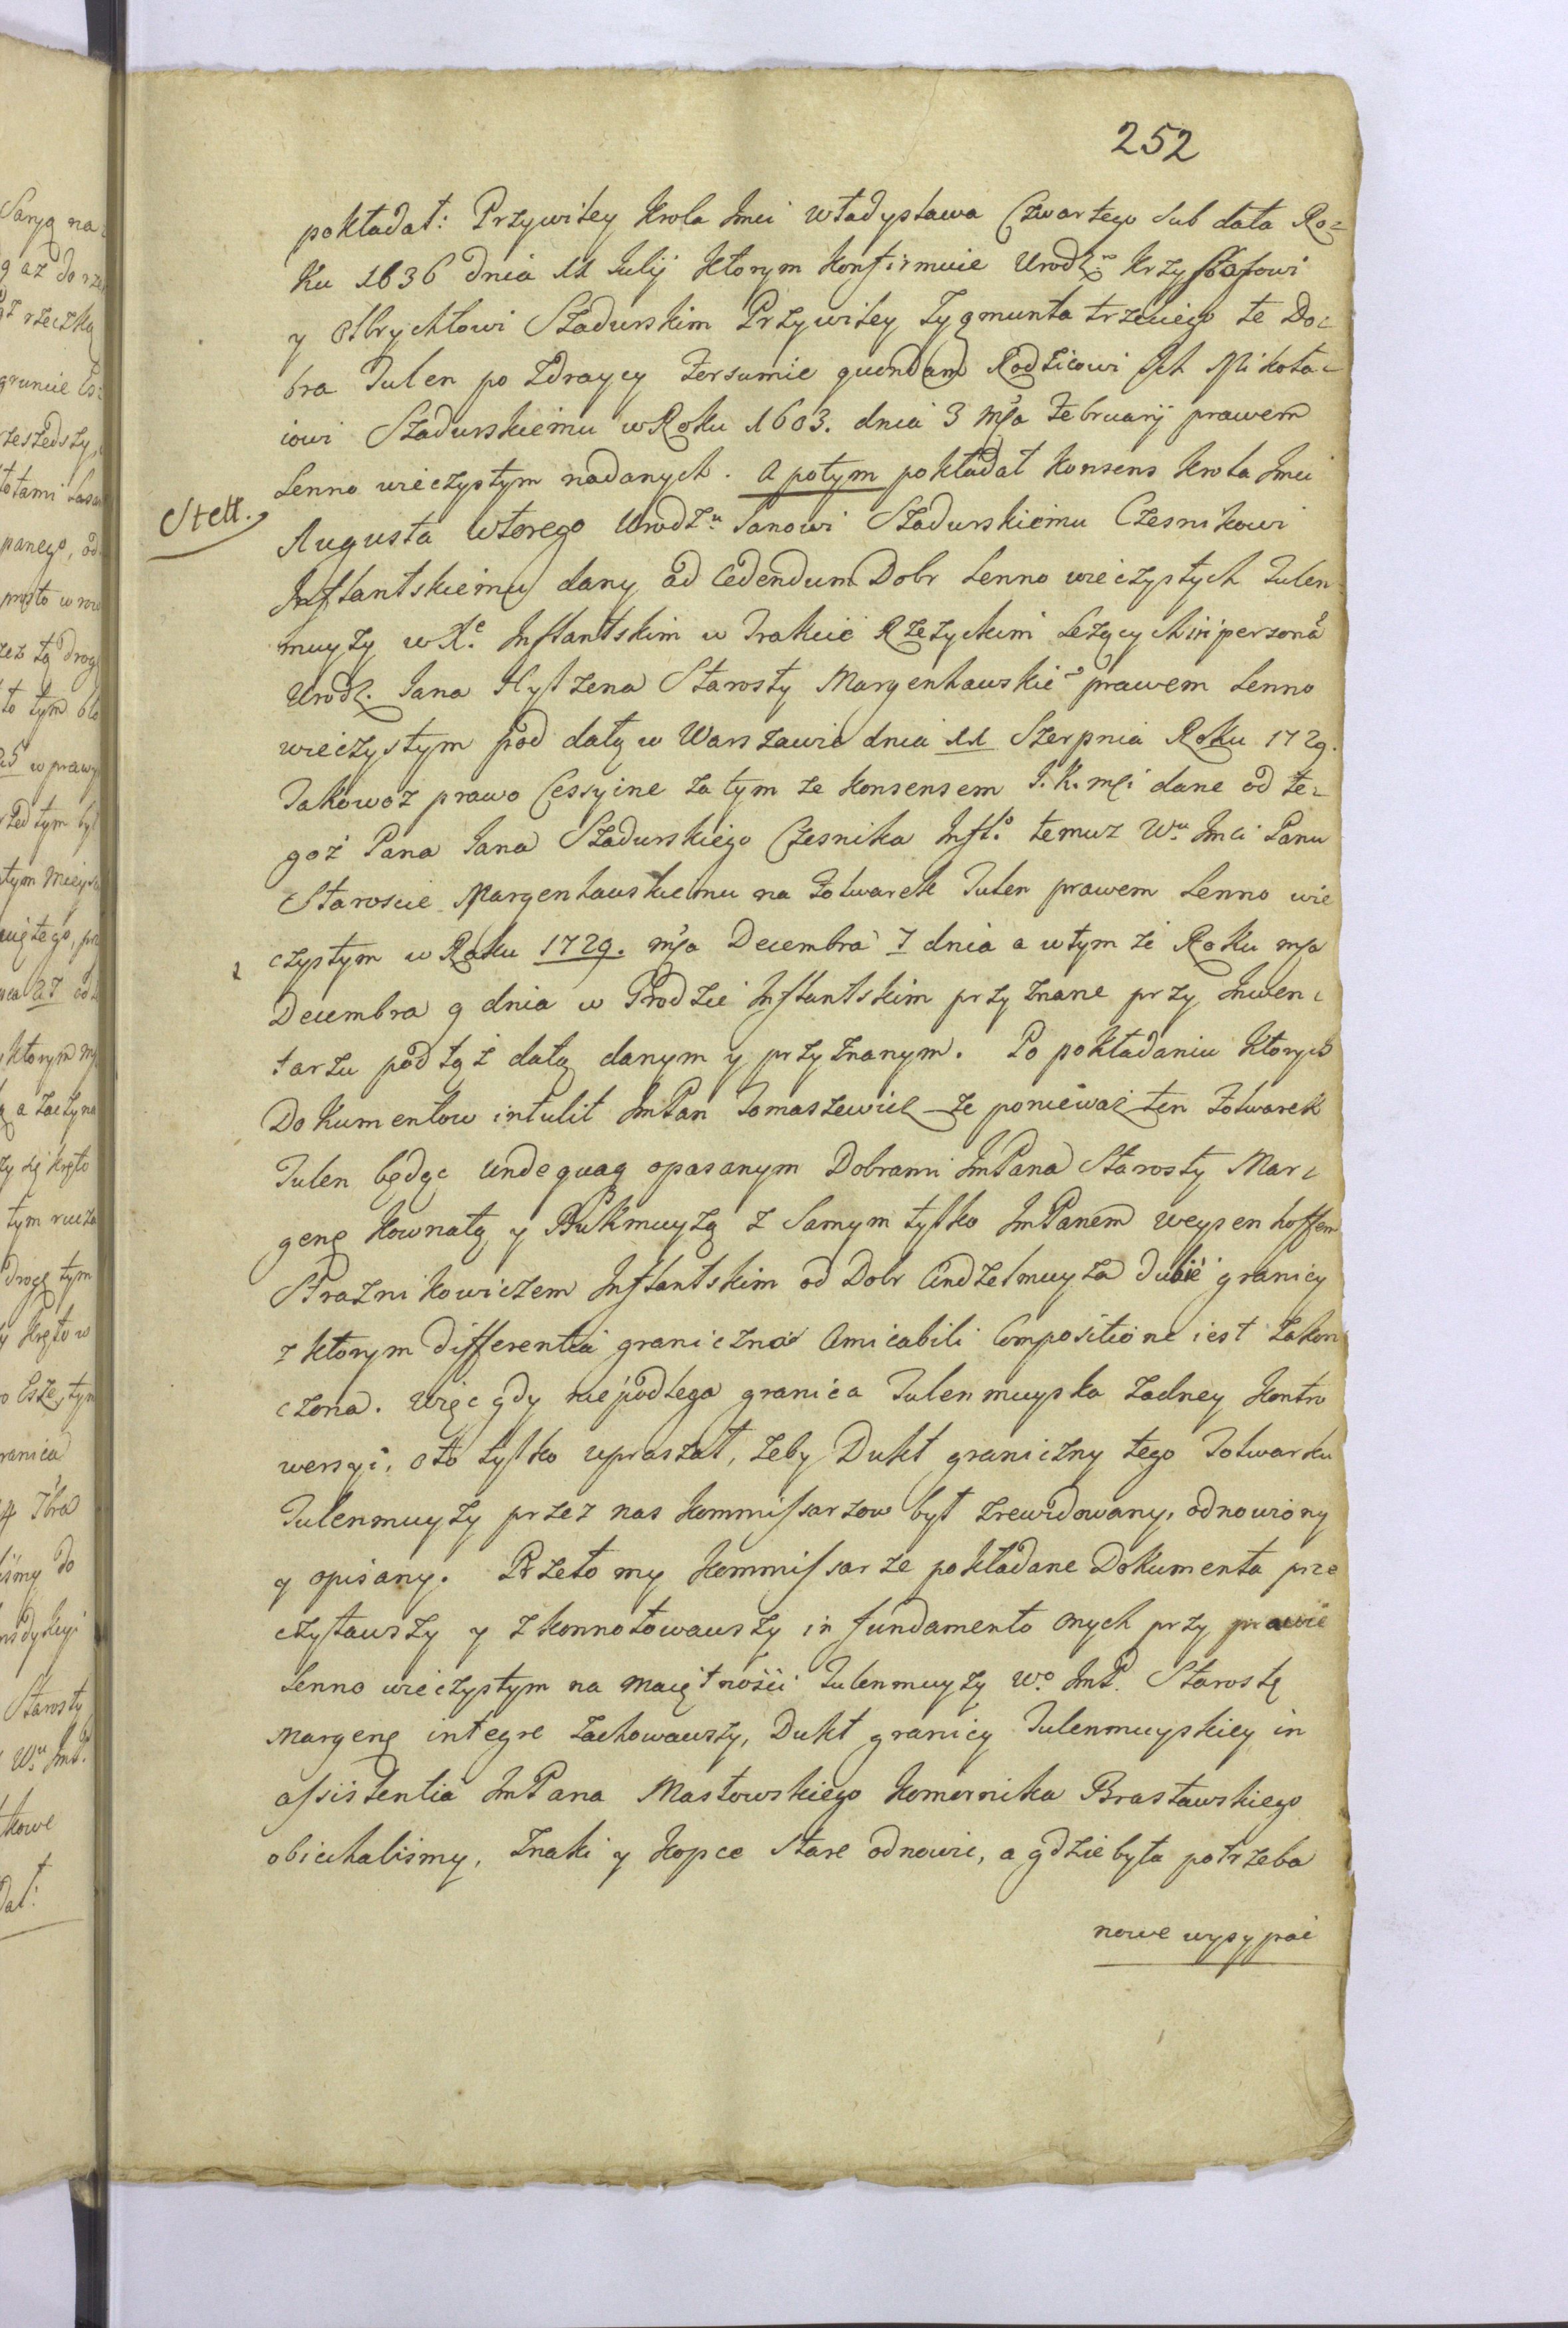 252
pokładał: Przywiley Krola Jmci Władysława Czwartego sub data Ro=
ku 1636 dnia 11 Julij ktorym konfirmuie Urodz. Krzysztofowi
y Olbrychtowi Szadurskim Przywiley Zygmunta trzeciego te Do=
bra Julen po Zdraycy Fersumie quondam Rodzicowi Ich Mikoła=
iowi Szadurskiemu w Roku 1603. dnia 3 mca Februarij prawem
Lenno wieczystym nadanych. A potym pokładał Konsens Krola Jmci
Stett.
Augusta wtorego Urodz.u Janowi Szadurskiemu Czesnikowi
Inflantskiemu dany ad cedendum Dobr Lenno wieczystych Julen
muyzy w X.e Inflantskim w Trakcie Rzezyckim Leżących in personã
Urodz. Jana Hylzena Starosty Margenhauskie° prawem Lenno
wieczystym pod datą w Warszawie dnia 11 Sierpnia Roku 1729.
Jakowoz prawo Cessyine za tym ze konsensem J.K.mci dane od te=
goż Pana Jana Szadurskiego Czesnika Infl.° temuz W.u Jmci Panu
Staroscie Margenhauskiemu na Folwarek Julen prawem Lenno wie
czystym w Roku 1729. mca Decembra 7 dnia a w tym ze Roku mca
Decembra 9 dnia w Grodzie Inflantskim przyznane przy Inwen=
tarzu pod tąż datą danym y przyznanym. Po pokładaniu ktorych
Dokumentow intulit JmPan Tomaszewicz ze poniewaz ten Folwarek
Julen będąc undequaq opasanym Dobrami JmPana Starosty Mar=
geng Kownatą y Bukmuyzą z Samym tylko JmPanem Weysenhoffem
Straznikowiczem Inflantskim od Dobr Andzelmuyza granicy
z ktorym differentia graniczna Amicabili Compositione iest zakon
czona. Więc gdy niepodlega granica Julenmuyska zadney kontro
wersyi, oto tylko upraszał, zeby Dukt graniczny tego Folwarku
Julenmuyzy przez nas Kommissarzow był zrewidowany, odnowiony
y opisany. Przeto my Kommissarze pokładane Dokumenta prze
czytawszy y zkonnotowawszy in fundamento onych przy prawie
Lenno wieczystym na maiętności Julenmuyzy W.° JmP. Starostę
Margeng integre zachowawszy, Dukt granicy Julenmuyskiey in
assistentia JmPana Masłowskiego Komornika Brasławskiego
obiechalismy, Znaki y Kopce stare odnowic, a gdzie była potrzeba
nowe wysypać